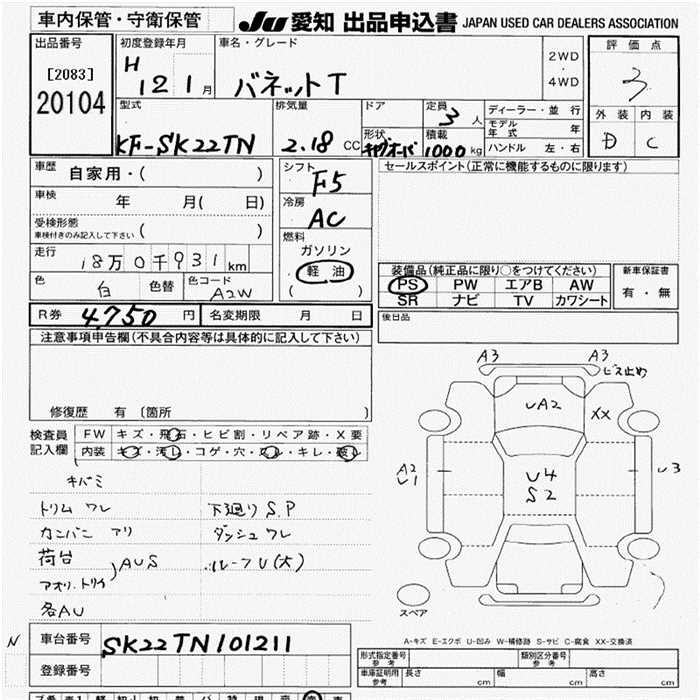 車内保管・守衛保管
JU 愛知 出品申込書 JAPAN USED CAR DEALERS ASSOCIATION
出品番号
[2083]
20104
初度登録年月
H 12 1 月
車名・グレード
バネットT
2WD
・
4WD
評価点
3
外装 内装
D C
型式
KF-SK22TN
排気量
2.18 CC
ドア
定員
3 人
形状
キャブオーバ
積載
1000 kg
ディーラー・並行
モデル年式 年
ハンドル 左・右
車歴
自家用・( )
車検
年 月( 日)
受検形態
車検付きのみ記入して下さい
( )
走行
18万0千931km
色
白
色替
色コード
A2W
シフト
F5
冷房
AC
燃料
ガソリン
軽油
( )
セールスポイント(正常に機能するものに限ります)
装備品(純正品に限り○をつけてください)
PS PW エアB AW
SR ナビ TV カワシート
新車保証書
有・無
R券 4,750 円 名変期限 月 日
後日品
注意事項申告欄(不具合内容等は具体的に記入して下さい)
修復歴 有 〔箇所 〕
検査員
記入欄
FW キズ・飛石・ヒビ割・リペア跡・X要
内装 キズ・汚レ・コゲ・穴・スレ・キレ・破レ
キバミ
トリム ワレ
カンバン アリ
荷台
アオリ.トリイ
AUS
各AU
下廻りS.P
ダッシュワレ
ルーフU(大)
A3 A3
ビス止め
UA2
XX
A2
U1
U4
S2
U3
スペア
A-キズ E-エクボ U-凹み W-補修跡 S-サビ C-腐食 XX-交換済
N
車台番号 SK22TN101211
登録番号
形式指定番号
参考
類別区分番号
参考
車庫証明用
参考
長さ cm 幅 cm 高さ cm